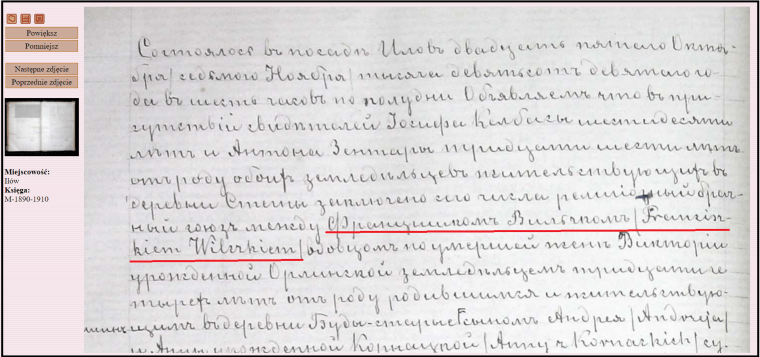 Powiększ
Pomniejsz
Następne zdjęcie
Poprzednie zdjęcie
Miejscowość:
Iłów
Księga:
M-1890-1910
Состоялось въ посадѣ Иловъ двадцать пятаго Октя-
бря/седьмого Ноября/тысяча девятьсотъ девятаго го-
да въ шесть часовъ по полудни Объявляемъ что въ при-
сутствіи свидѣтелей Іосифа Келбасы шестидесяти
лѣтъ и Антона Зентары тридцати шести лѣтъ
отъ роду обоихъ земледѣльцевъ жительствующихъ въ
деревни заключено сего числа религіозный брач-
ный союзъ между Францишкомъ Вильчкомъ/Francisz-
kiem Wilczkiem/вдовцомъ по умершей женѣ Викторіи
урожденной Орлинской земледѣльцемъ тридцати че
тырехъ лѣтъ отъ роду родившимся и жительствую-
щимъ въ деревни Буды-старые сыномъ Андрея/Andrzeja/
и Анны урожденной Корнацкой/Anny z Kornackich/су-